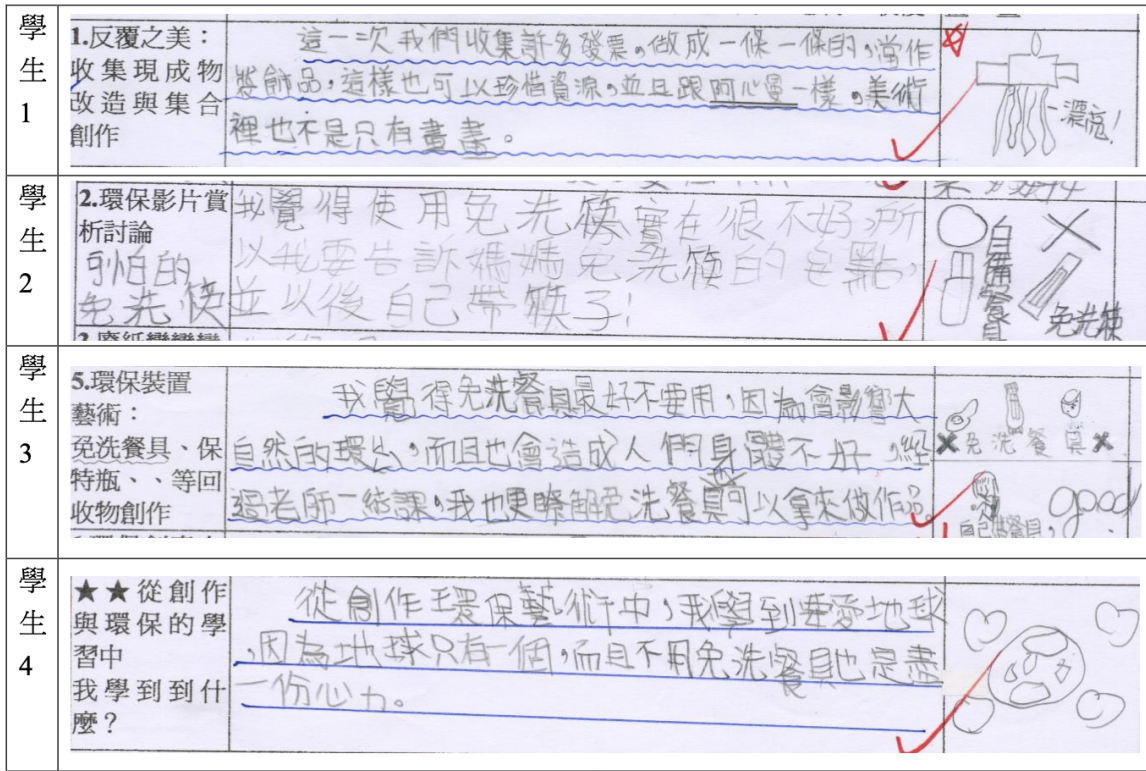 學生1
1.反覆之美：
收集現成物
改造與集合
創作
這一次我們收集許多發票。做成一條一條的，當作
裝飾品，這樣也可以珍惜資源。並且跟阿心曼一樣。美術
裡也不是只有畫畫。
漂亮！
學生2
2.環保影片賞
析討論
可怕的
免洗筷
我覺得使用免洗筷實在很不好，所
以我要告訴媽媽免洗筷的
並以後自己帶筷子！
自備餐具
免洗筷
學生3
5.環保裝置
藝術：
免洗餐具、保
特瓶、、等回
收物創作
我覺得免洗餐具最好不要用，因為會影響大
自然的環，而且也會造成人們身體不好。經
過老師一結課，我也更瞭解免洗餐具可以拿來做作品。
免洗餐具
good
自己餐具，
學生4
★★從創作
與環保的學
習中
我學到到什
麼？
從創作環保藝術中，我學到要愛地球
，因為地球只有一個，而且不用免洗餐具也是盡
一份心力。